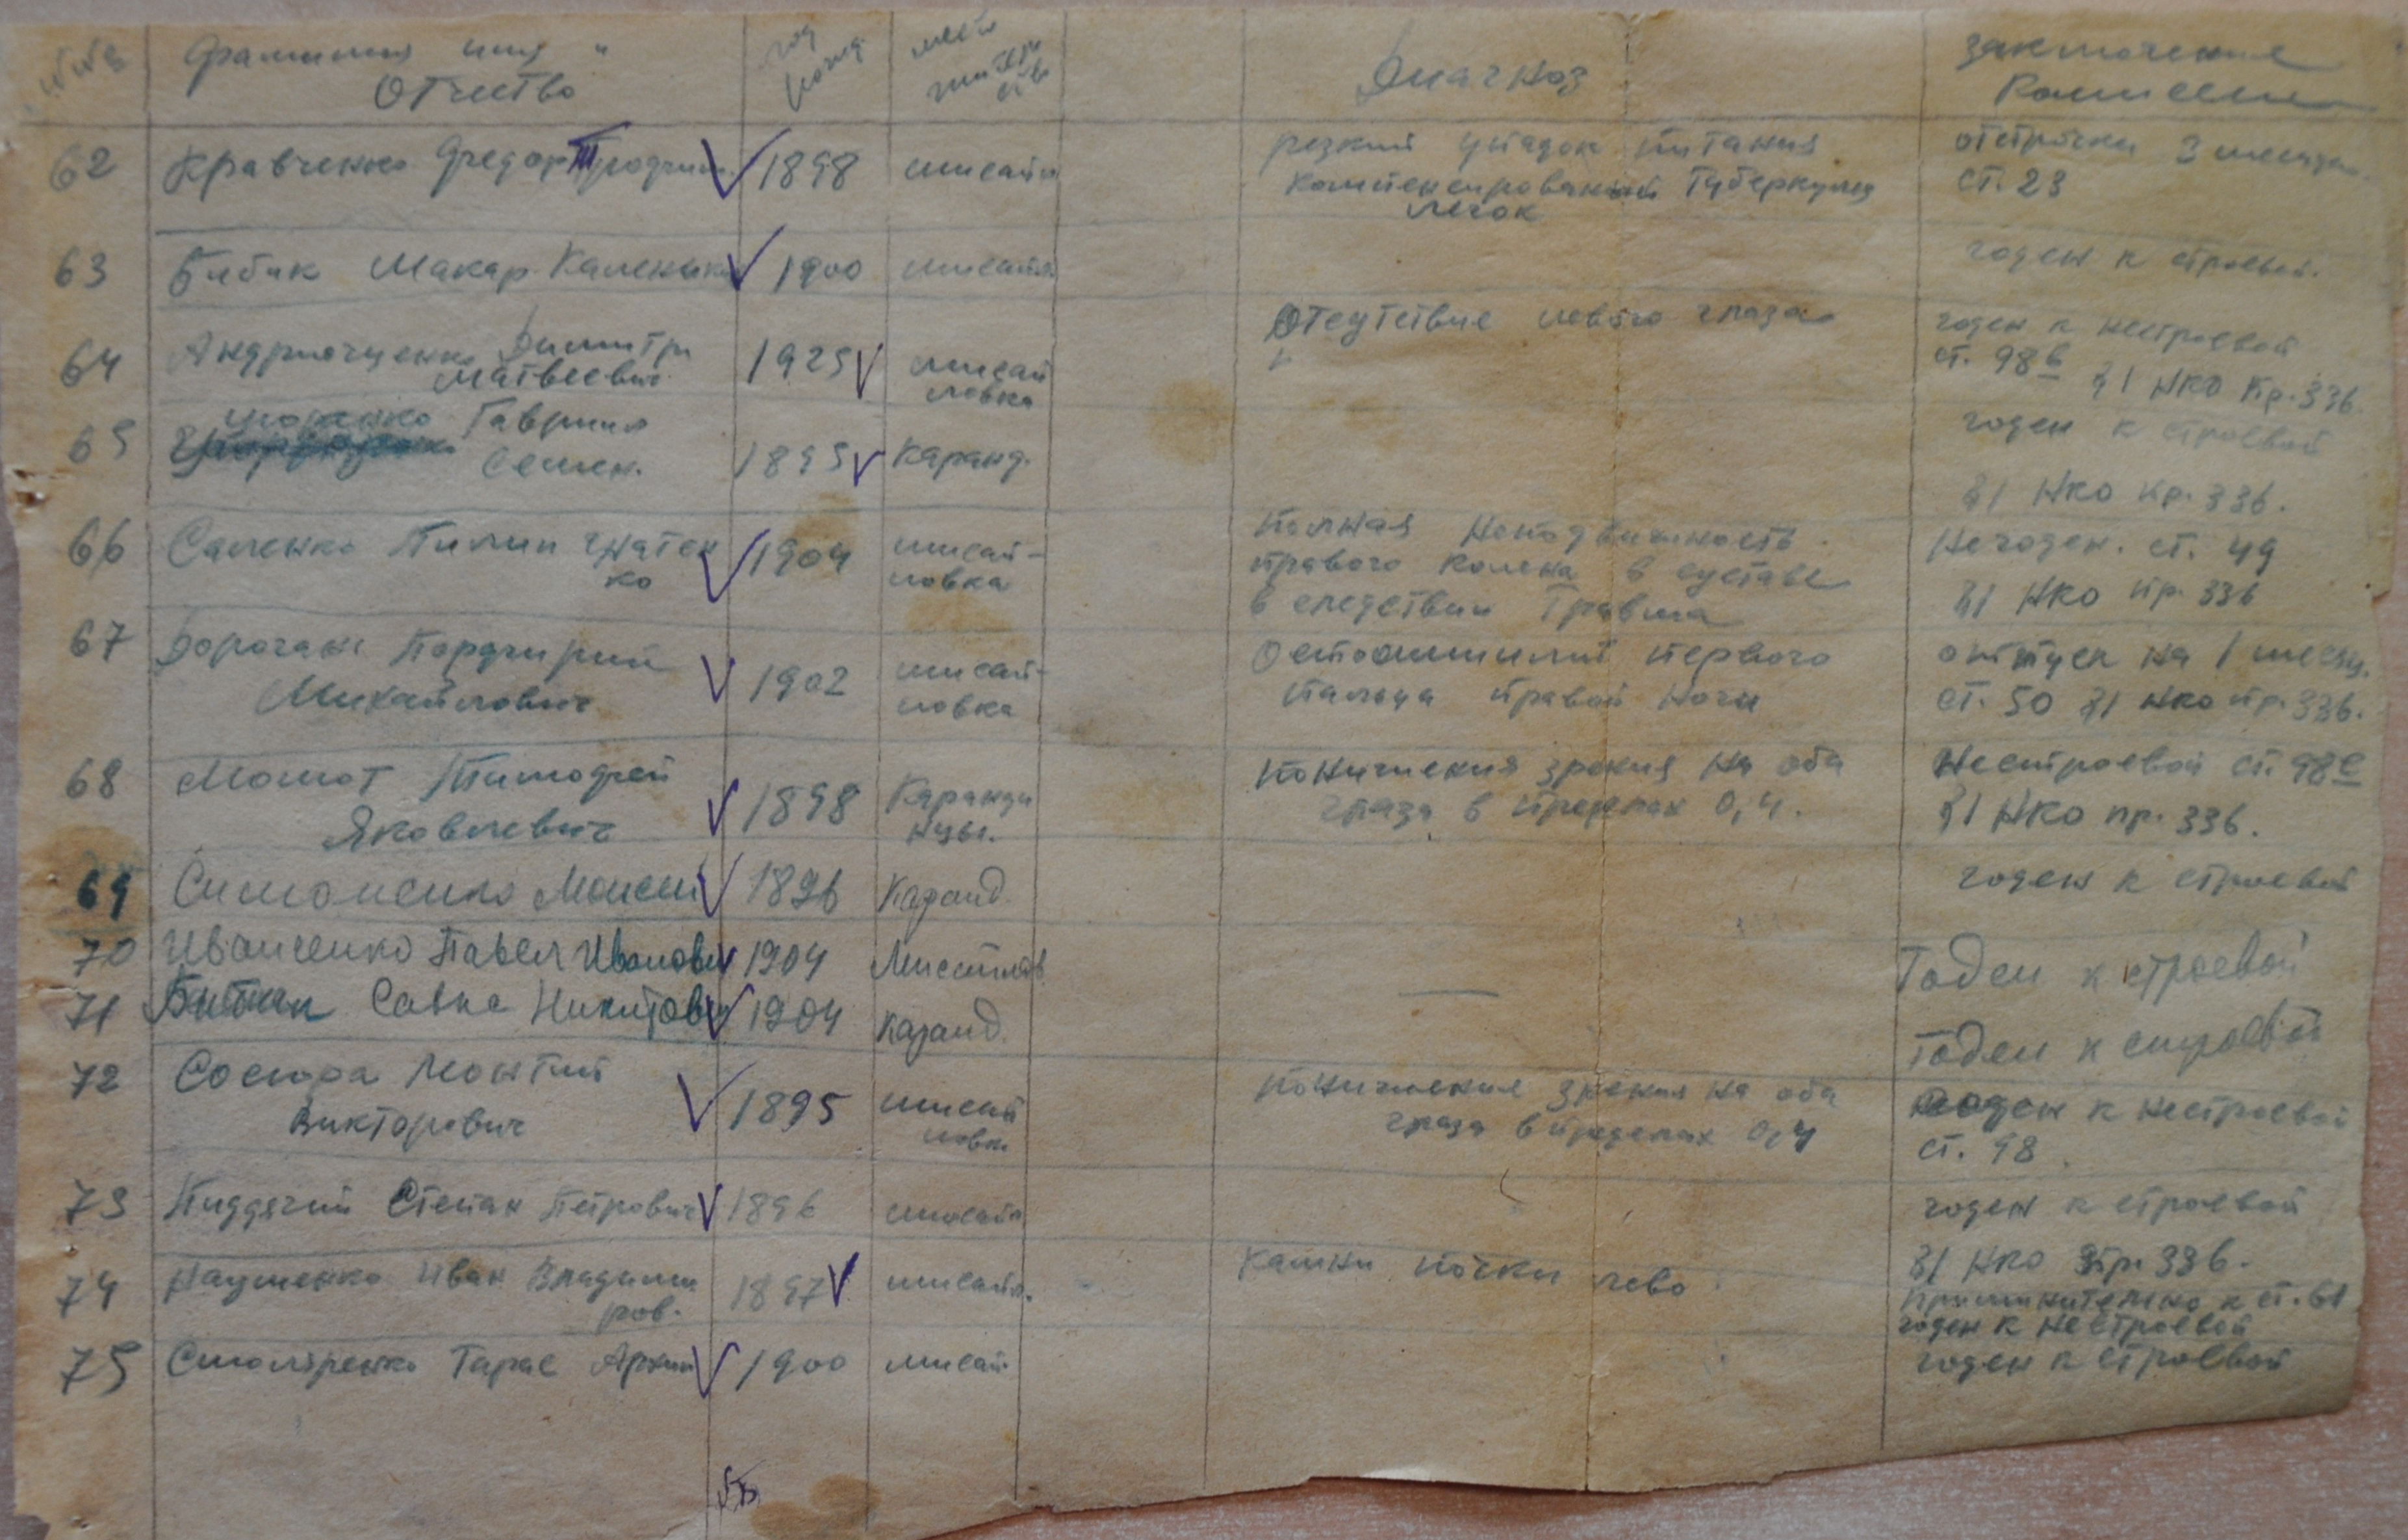 Фамилия имя и
Отчество
год
рожд
Диагноз
заключение
комиссии
62 Кравченко Федор Трофим. 1898 мисайл резкий упадок питания отсрочка 3 месяца
компенсированный туберкулез ст. 23
легок
63 Бибик Макар Каленик 1900 мисайл годен к строевой.
64 Андрющенко Димитри 1925 мисай Отсутствие левого глаза годен к нестроевой
Матвеевич ловка ст. 98 в 31 НКО Пр. 336.
65 Гавриил 1895 Каранд. годен к строевой
Семен. 31 НКО пр. 336.
66 Саленко Пилип Игнатен 1904 мисай- полная неподвижность Негоден. ст. 49
ко ловка правого колена в суставе 31 НКО пр. 336
в следствии травма
67 Дорогань Порфирий 1902 мисай- Остеомиилит первого отпуск на 1 месяц.
Михайлович ловка пальца правой ноги ст. 50 31 НКО пр. 336.
68 Момот Тимофей 1898 Каранди понижения зрения на оба Нестроевой ст. 98 е
Яковлевич глаза в пределах 0,4. 31 НКО пр. 336.
69 Симоненко Моисей 1896 Каранд. годен к строевой
70 Иванченко Павел Иванович 1904 Мисайлов Годен к строевой
71 Савка Никитович 1904 Каранд. Годен к строевой
72 Сосюра Леонтий 1895 мисай понижение зрения на оба годен к нестроевой
Викторович ловк. глаза в пределах 0,4 ст. 98
73 Пиддячий Степан Петрович 1896 мисайл годен к строевой
74 Науменко Иван Владими 1897 мисайл. Камни почки лево 31 НКО пр. 336.
ров. применительно к ст. 61
годен к нестроевой
75 Столяренко Тарас Архип 1900 мисай годен к строевой